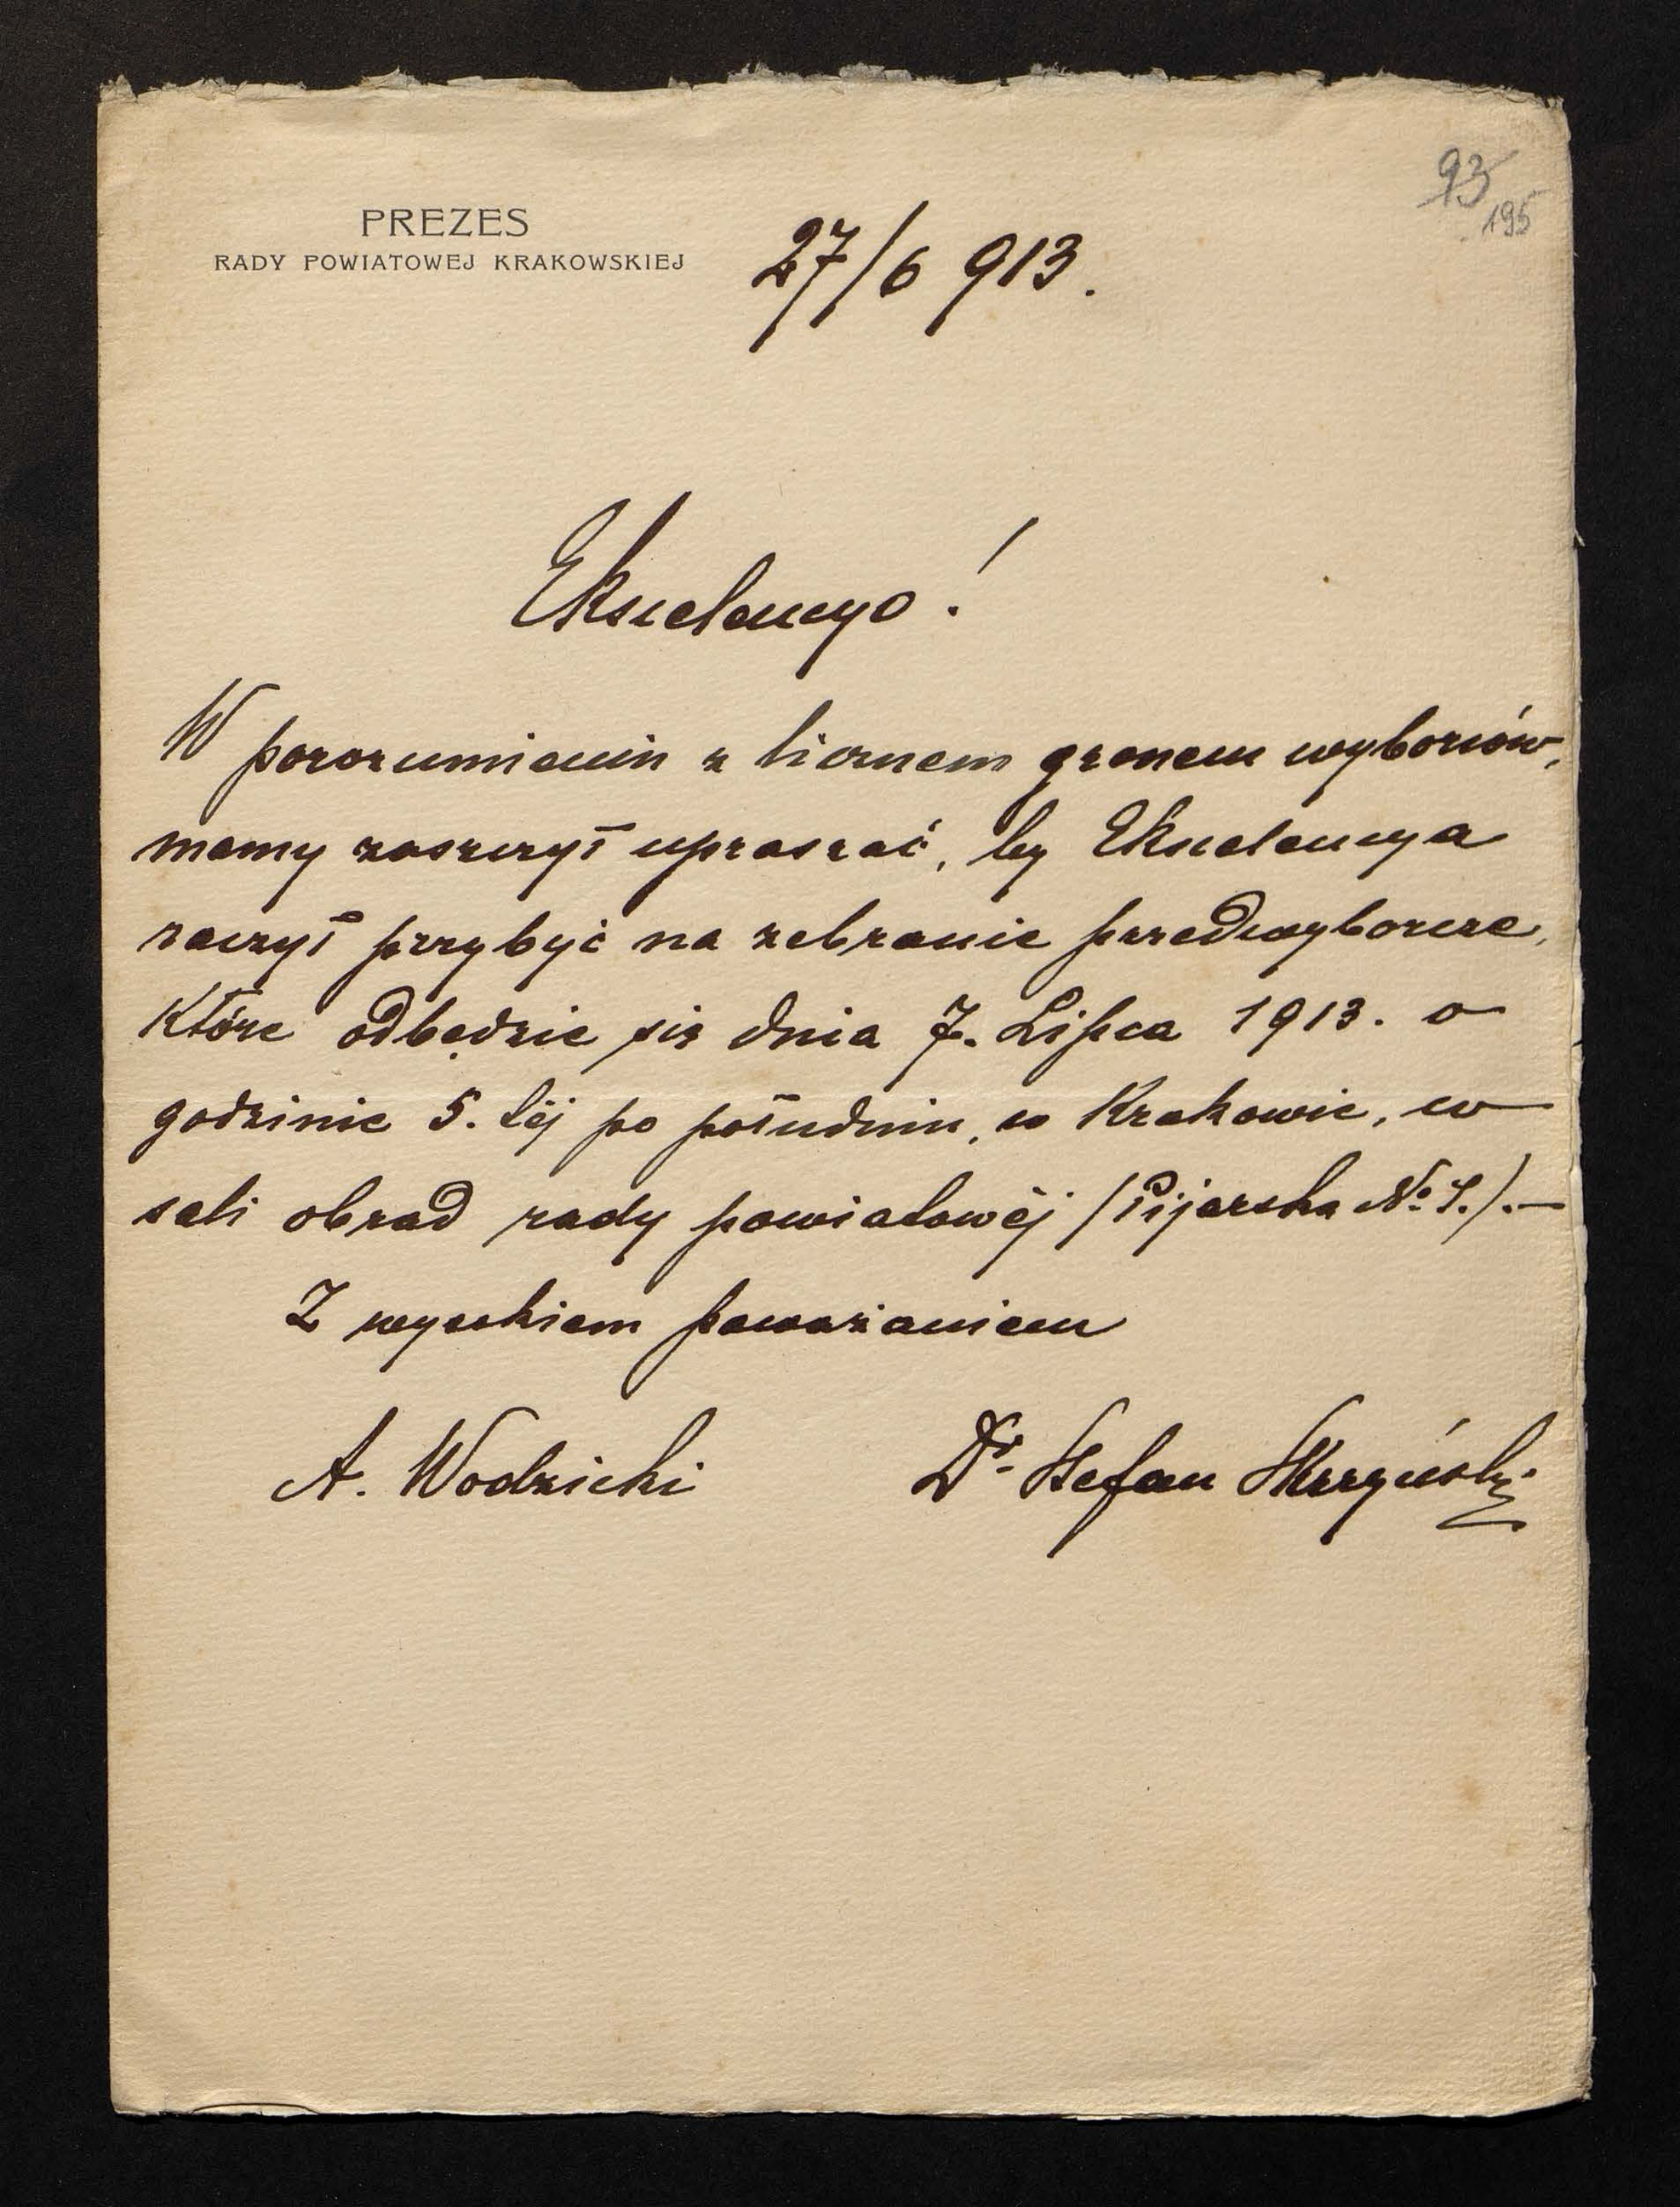 93
195
PREZES
RADY POWIATOWEJ KRAKOWSKIEJ
27/6 913.
Ekscelencyo!
W porozumieniu z licznem gronem wyborców,
mamy zaszczyt upraszać, by Ekscelencya
raczył przybyć na zebranie przedwyborcze,
które odbędzie się dnia 7. Lipca 1913. o
godzinie 5. téj po południu, w Krakowie, w
sali obrad rady powiatowéj (Pijarska No.).—
Z wysokiem poważaniem
A. Wodzicki
Dr. Stefan Skrzyński